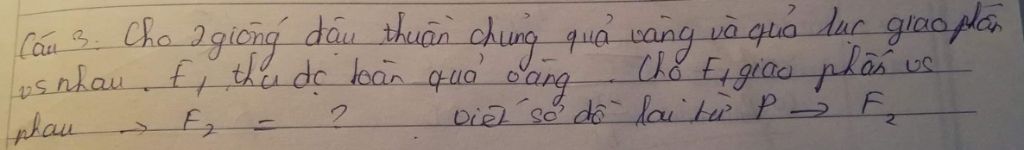 Câu 3: Cho 2 giống đậu thuần chủng quả vàng và quả lục giao phấn
vs nhau. F₁ thu đc toàn quả vàng. Cho F₁ giao phấn vs
nhau → F₂ = ? Viết sơ đồ lai từ P → F₂